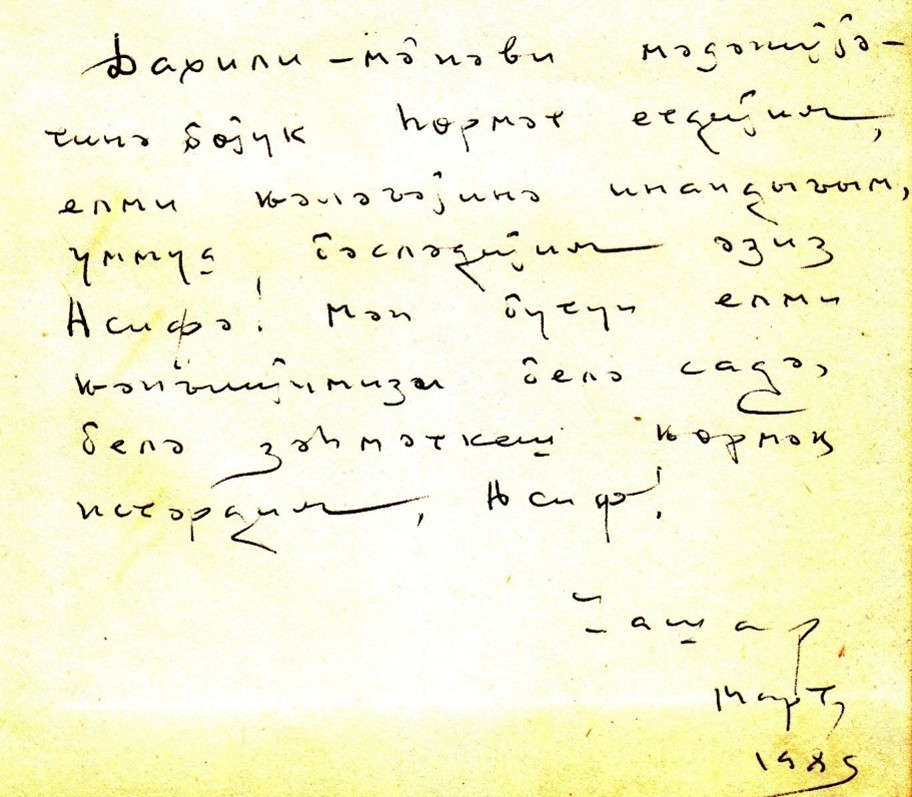 Дахили-мә'нәви мәдәнијјә-
тинә бөјүк һөрмәт етдијим,
елми ҝәләҹәјинә инандығым,
үммид бәсләдијим әзиз
Асифә! Мән бүтүн елми
ҝәнҹлијимизи белә садә,
белә зәһмәткеш ҝөрмәк
истәрдим, Асиф!
Јашар
Март,
1985